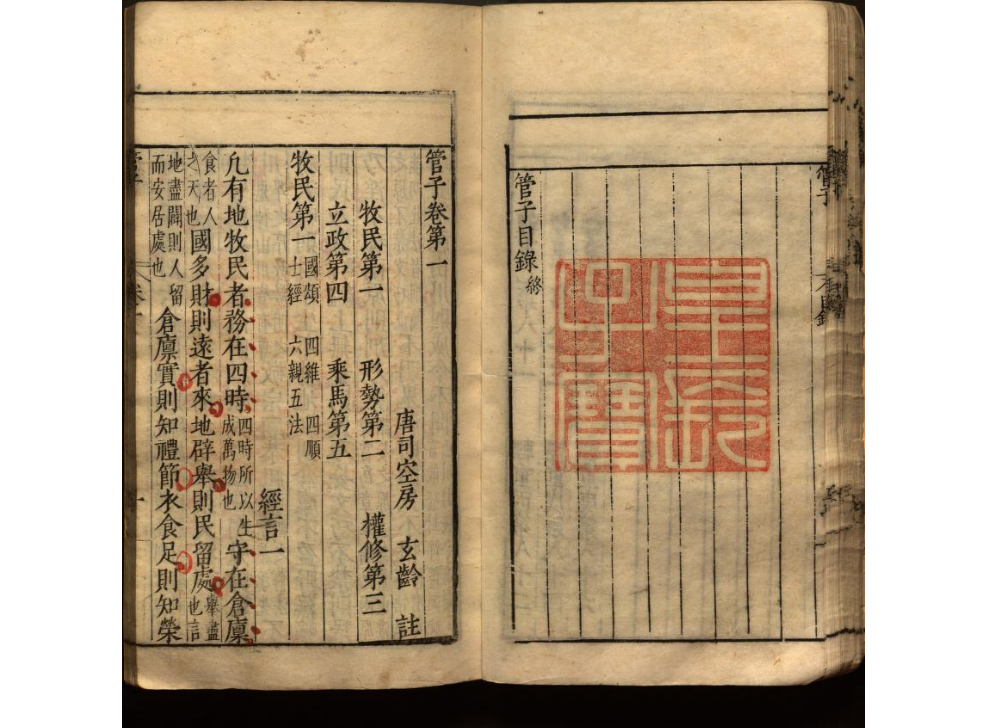 管子目錄終
管子卷第一
唐司空房 玄齡 註
牧民第一 形勢第二 權修第三
立政第四 乘馬第五
牧民第一 國頌 四維 四順 士經 六親五法
經言一
凡有地牧民者務在四時四時所以生成萬物也守在倉廩
食者人之天也國多財則遠者來地辟舉則民留處舉盡也言
地盡闢則人留而安居處也倉廩實則知禮節衣食足則知榮